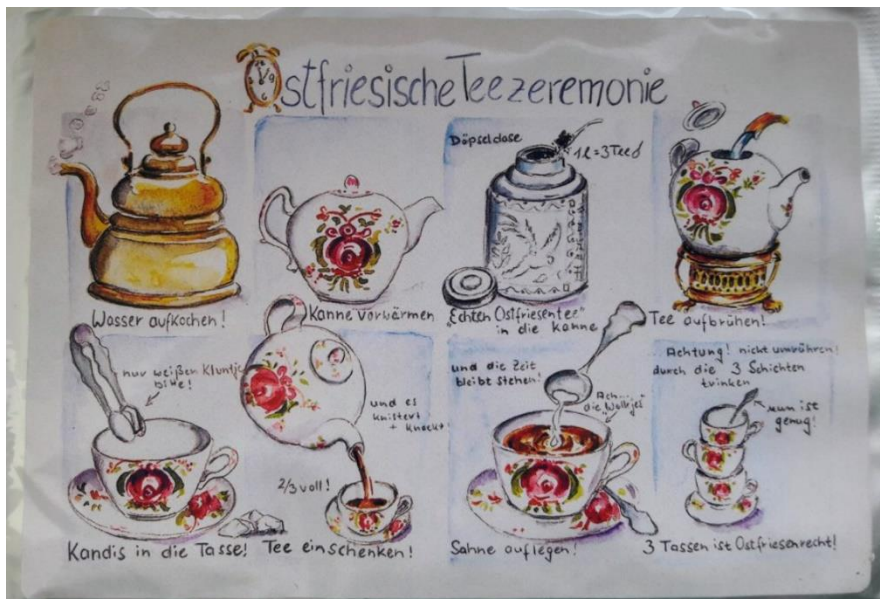 Ostfriesische Teezeremonie
Wasser aufkochen!
Kanne vorwärmen
Döpseldose
1l=3Teel
"Echten Ostfriesentee"
in die Kanne
Tee aufbrühen!
nur weißen Kluntje
bitte!
Kandis in die Tasse!
und es
knistert
+ knackt!
2/3 voll!
Tee einschenken!
und die Zeit
bleibt stehen!
Ach....
die Wolkje!
Sahne auflegen!
Achtung! nicht umrühren!
durch die 3 Schichten
trinken
nun ist
genug!
3 Tassen ist Ostfriesenrecht!